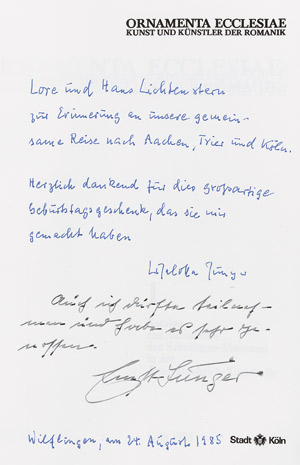 ORNAMENTA ECCLESIAE
KUNST UND KÜNSTLER DER ROMANIK
Lore und Hans Lichtenstern
zur Erinnerung an unsere gemein-
same Reise nach Aachen, Trier und Köln.
Herzlich dankend für dies großartige
Geburtstagsgeschenk, das sie mir
gemacht haben
Liselotte Jünger
Auch ich durfte teilneh-
men und habe es sehr ge-
nossen.
Ernst Jünger
Wilflingen, am 24. August 1985
Stadt Köln